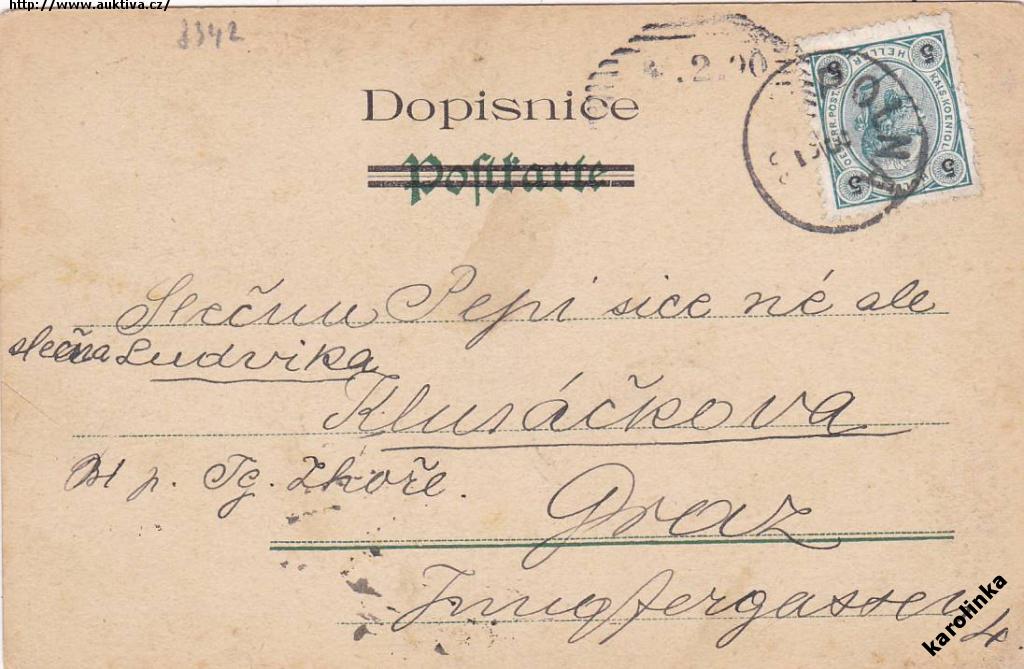 http://www.auktiva.cz/
8342
.2.00
Dopisnice
Postkarte
5 HELLER 5
KAIS. KOENIGL.
OESTERR. POST
5 5
Slečnu Pepi sice né ale
slečna Ludvika
Klusáčkova
p. Tg. Zhoře.
Graz
Jungfergassen
4.
karolinka